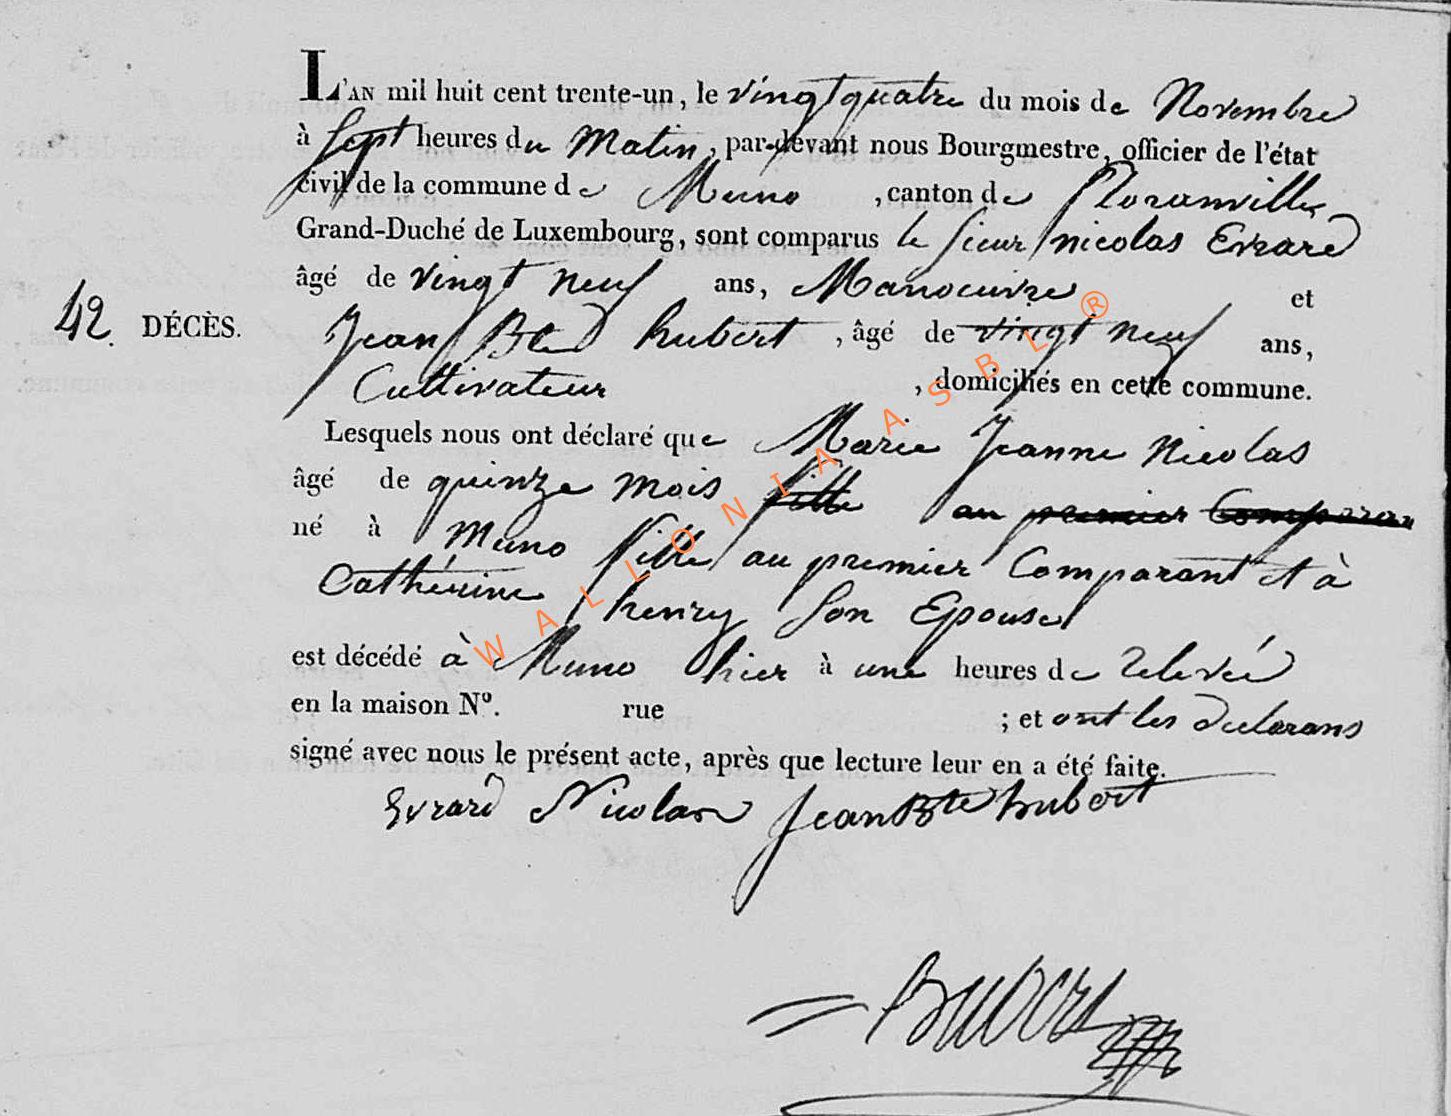 L'AN mil huit cent trente-un, le vingt quatre du mois de Novembre
à Sept heures du Matin, par-devant nous Bourgmestre, officier de l'état
civil de la commune de Muno, canton de Floranville
Grand-Duché de Luxembourg, sont comparus le sieur nicolas Evrard
âgé de vingt neuf ans, Manoeuvre et
42. DÉCÈS.
Jean Bte hubert, âgé de vingt neuf ans,
Cultivateur, domiciliés en cette commune.
Lesquels nous ont déclaré que Marie Jeanne Nicolas
âgé de quinze mois fille au premier Comparan
né à Muno fille au premier Comparant et à
Cathérine henry Son Epouse
est décédé à Muno hier à une heures de relevée
en la maison Nº. rue ; et ont les declarans
signé avec nous le présent acte, après que lecture leur en a été faite.
Evrard Nicolas Jean Bte hubert
WALLONIA ASBL ®